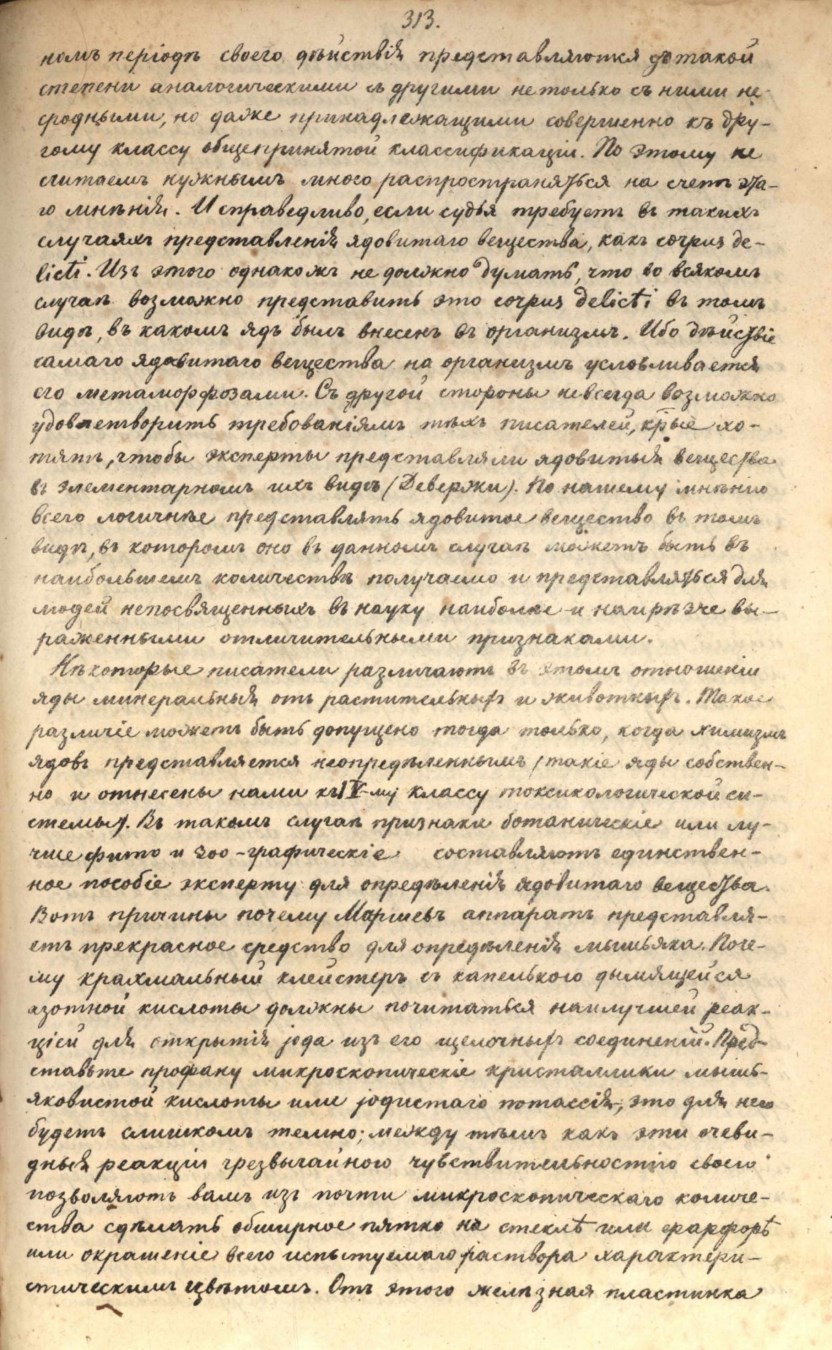 313.
номъ періодѣ своего дѣйствія представляются до такой
степени аналогическими съ другими не только съ ними не
сродными, но даже принадлежащими совершенно къ дру-
гому классу общепринятой классификаціи. По этому не
считаемъ нужнымъ много распространяться на счетъ эта-
го мнѣнія. И справедливо, если судья требуетъ въ такихъ
случаяхъ представленія ядовитаго вещества, какъ corpus de-
licti. Изъ этого однакожъ не должно думать, что во всякомъ
случаѣ возможно представить это corpus delicti въ томъ
видѣ, въ какомъ ядъ былъ внесенъ въ организмъ. Ибо дѣйствіе
самаго ядовитаго вещества на организмъ условливается
его метаморфозами. Съ другой стороны не всегда возможно
удовлетворить требованіямъ тѣхъ писателей, крые хо-
тятъ, чтобы эксперты представляли ядовитыя вещества
въ элементарномъ ихъ видѣ (Девержи). По нашему мнѣнію
всего логичнѣе представлять ядовитое вещество въ томъ
видѣ, въ которомъ оно въ данномъ случаѣ можетъ быть въ
наибольшемъ количествѣ получаемо и представляться для
людей непосвященныхъ въ науку наиболѣе и наирѣзче вы-
раженными отличительными признаками.
Нѣкоторые писатели различаютъ въ этомъ отношеніи
яды минеральныя отъ растительныхъ и животныхъ. Такое
различіе можетъ быть допущено тогда только, когда химизмъ
ядовъ представляется неопредѣленнымъ (такіе яды собствен-
но и отнесены нами къ IV-му классу токсикологической си-
стемы). Въ такомъ случаѣ признаки ботаническіе или лу-
чше фито и зоо-графическіе составляютъ единствен-
ное пособіе эксперту для опредѣленія ядовитаго вещества.
Вотъ причины почему Маршевъ аппаратъ представля-
етъ прекрасное средство для опредѣленія мышьяка. Поче-
му крахмальный клейстеръ съ капелькою дымящейся
азотной кислоты должны почитаться наилучшей реак-
ціей для открытія јода изъ его щелочныхъ соединеній. Пред-
ставьте профану микроскопическіе кристаллики мышь-
яковистой кислоты или јодистаго потассія, это для него
будетъ слишкомъ темно; между тѣмъ какъ эти очеви-
дныя реакціи чрезвычайною чувствительностію своею
позволяютъ вамъ изъ почти микроскопическаго количе-
ства сдѣлать обширное пятно на стеклѣ или фарфорѣ
или окрашеніе всего испытуемаго раствора характери-
стическимъ цвѣтомъ. Отъ этого желѣзная пластинка